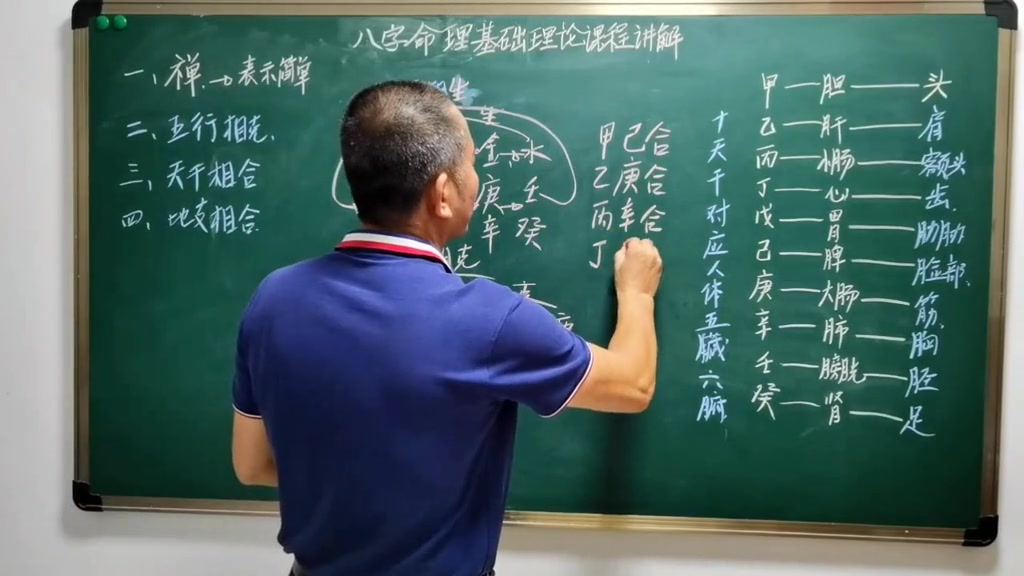 八字命理基础理论课程讲解
一、禅→表示简单
二、五行相克.
三、天干相合
四、地支相合
金→水
庚→壬
辛 癸
甲己合
乙庚合
丙辛合
丁
十天干对应人体五臓六腑
甲—胆—头
乙—肝—肩
丙—小肠—额头
丁—心—齿.
戊—胃—肋肋
己—脾—脸部.
庚—大肠—筋.
辛—肺—胸
壬—膀胱—胫
癸—肾—足